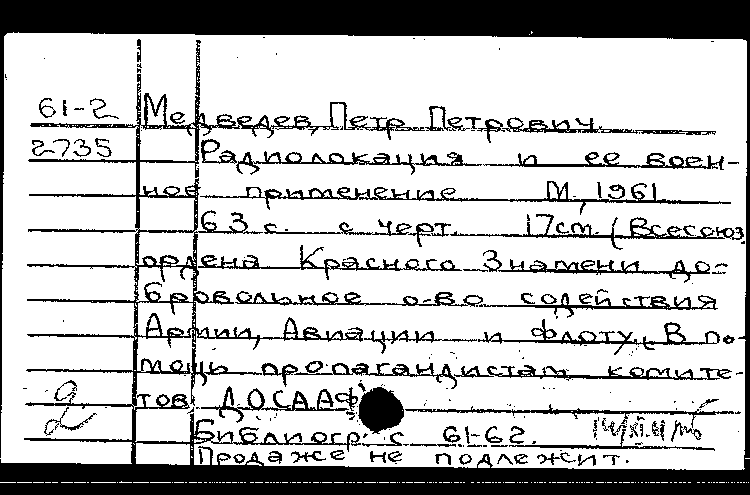 61-2 Медведев, Петр Петрович.
2735 Радиолокация и ее воен-
ное применение М., 1961
63 с. с черт. 17см. (Всесоюз
ордена Красного Знамени до-
бровольное о-во содействия
Армии, Авиации и флоту. В по-
мощь пропагандистам комите-
тов ДОСААФ)
2
Библиогр: с 61-62.
Продаже не подлежит.